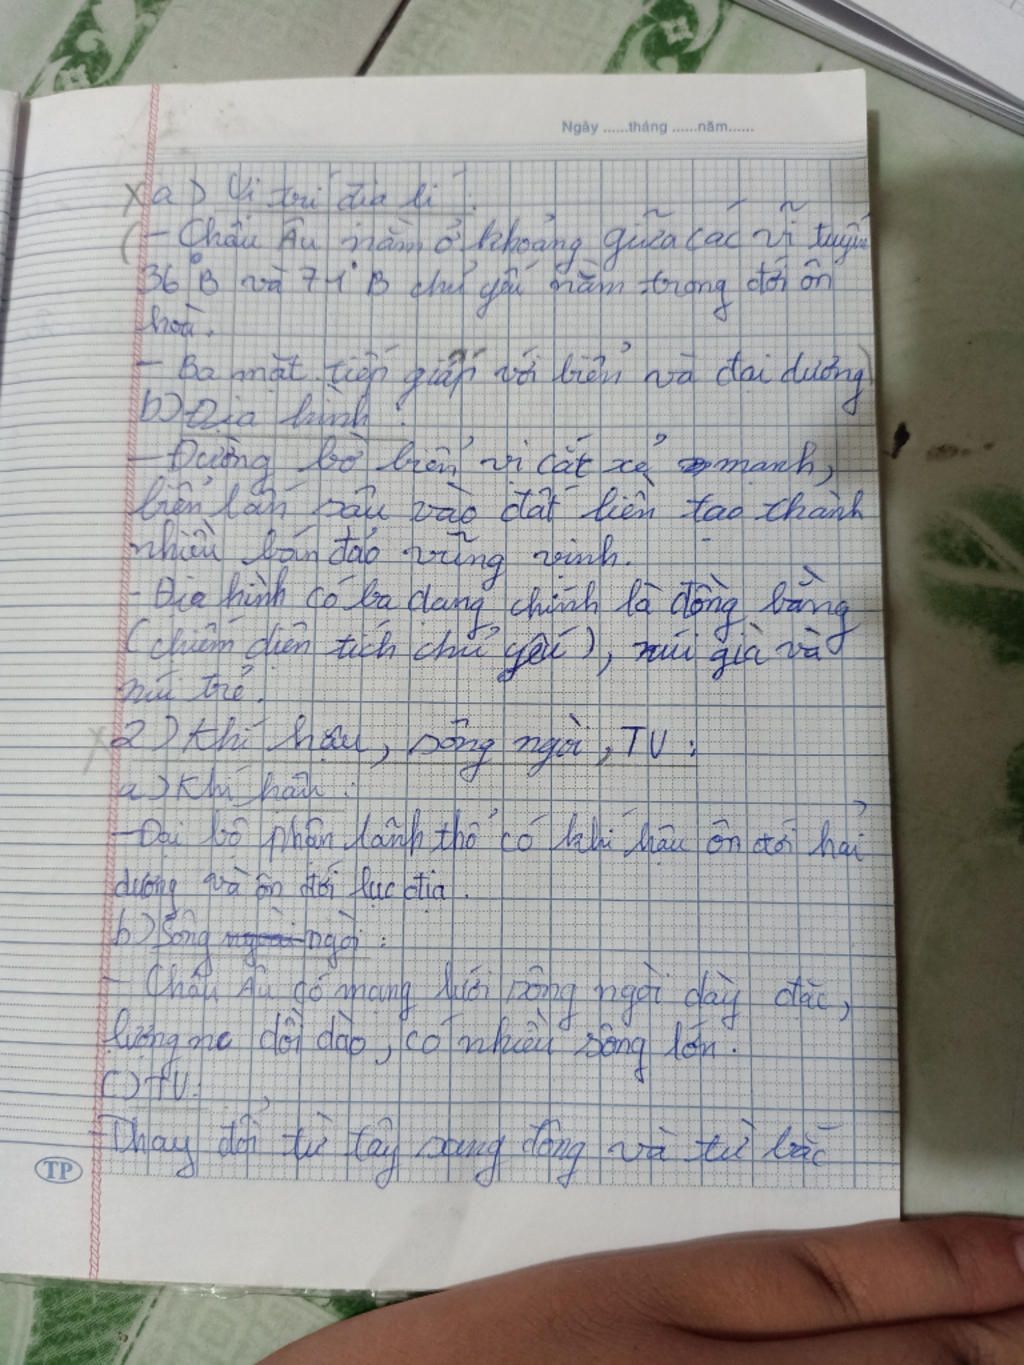 Ngày ......tháng ......năm......
a) Vị trí địa lí :
- Châu Âu nằm ở khoảng giữa các vĩ tuyến
36°B và 71°B chủ yếu nằm trong đới ôn
hoà.
- Ba mặt tiếp giáp với biển và đại dương
b) Địa hình :
- Đường bờ biển vị cắt xẻ mạnh,
biển lấn sâu vào đất liền tạo thành
nhiều bán đảo vũng vịnh.
- Địa hình có ba dạng chính là đồng bằng
(chiếm diện tích chủ yếu), núi già và
núi trẻ.
2) Khí hậu, sông ngòi, TV :
a) Khí hậu :
- Đại bộ phận lãnh thổ có khí hậu ôn đới hải
dương và ôn đới lục địa.
b) Sông ngòi :
- Châu Âu có mạng lưới sông ngòi dày đặc,
lượng nc dồi dào, có nhiều sông lớn.
c) TV:
- Thay đổi từ tây sang đông và từ bắc
TP